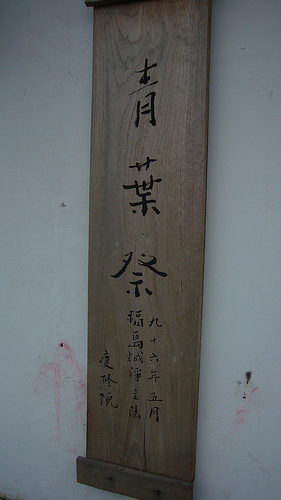 青葉祭
九十六年五月
福島誠淨主法
慶修院